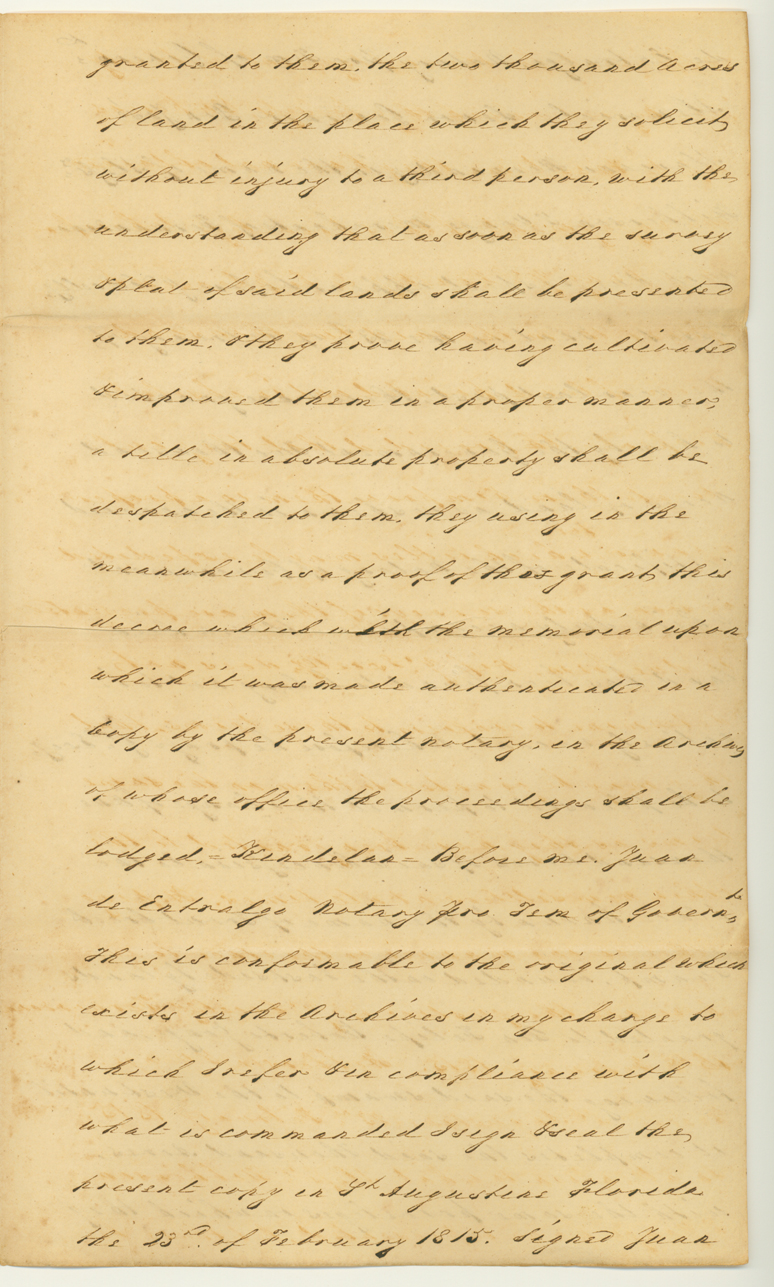 granted to them, the two thousand Acres
of land in the place which they solicit,
without injury to a third person, with the
understanding that as soon as the survey
& plat of said lands shall be presented
to them, & they prove having cultivated
& improved them in a proper manner,
a title in absolute property shall be
despatched to them, they using in the
meanwhile as a proof of this grant, this
decree which with the memorial upon
which it was made authenticated in a
Copy by the present notary, in the Archives
of whose office the proceedings shall be
lodged, = Kindelan = Before me. Juan
de Entralgo Notary Pro Tem of Governt
This is conformable to the original which
exists in the Archives in my charge to
which I refer & in compliance with
what is commanded I sign & seal the
present copy in St Augustine Florida
the 23rd. of February 1815. Signed Juan